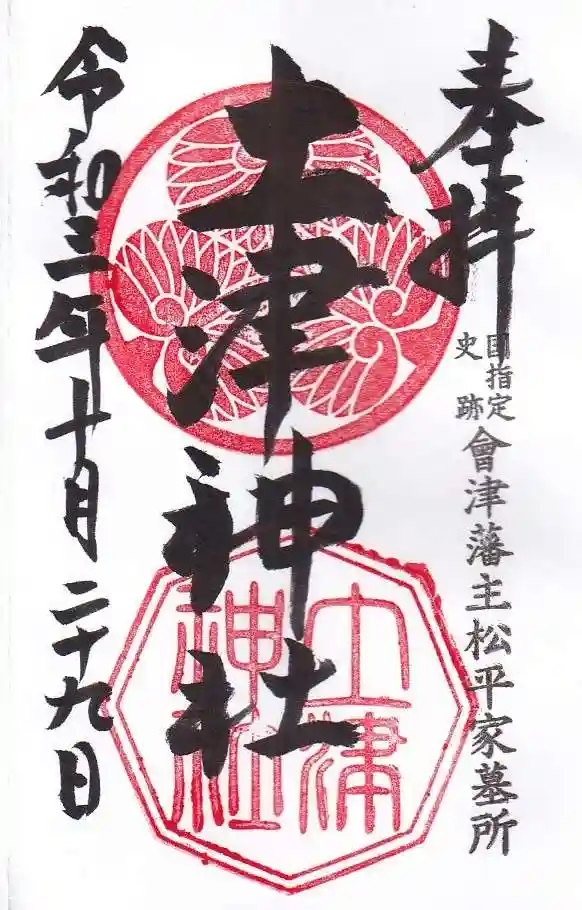 奉拝
国指定
史跡
會津藩主松平家墓所
土津神社
土津
神社
令和三年十月二十九日